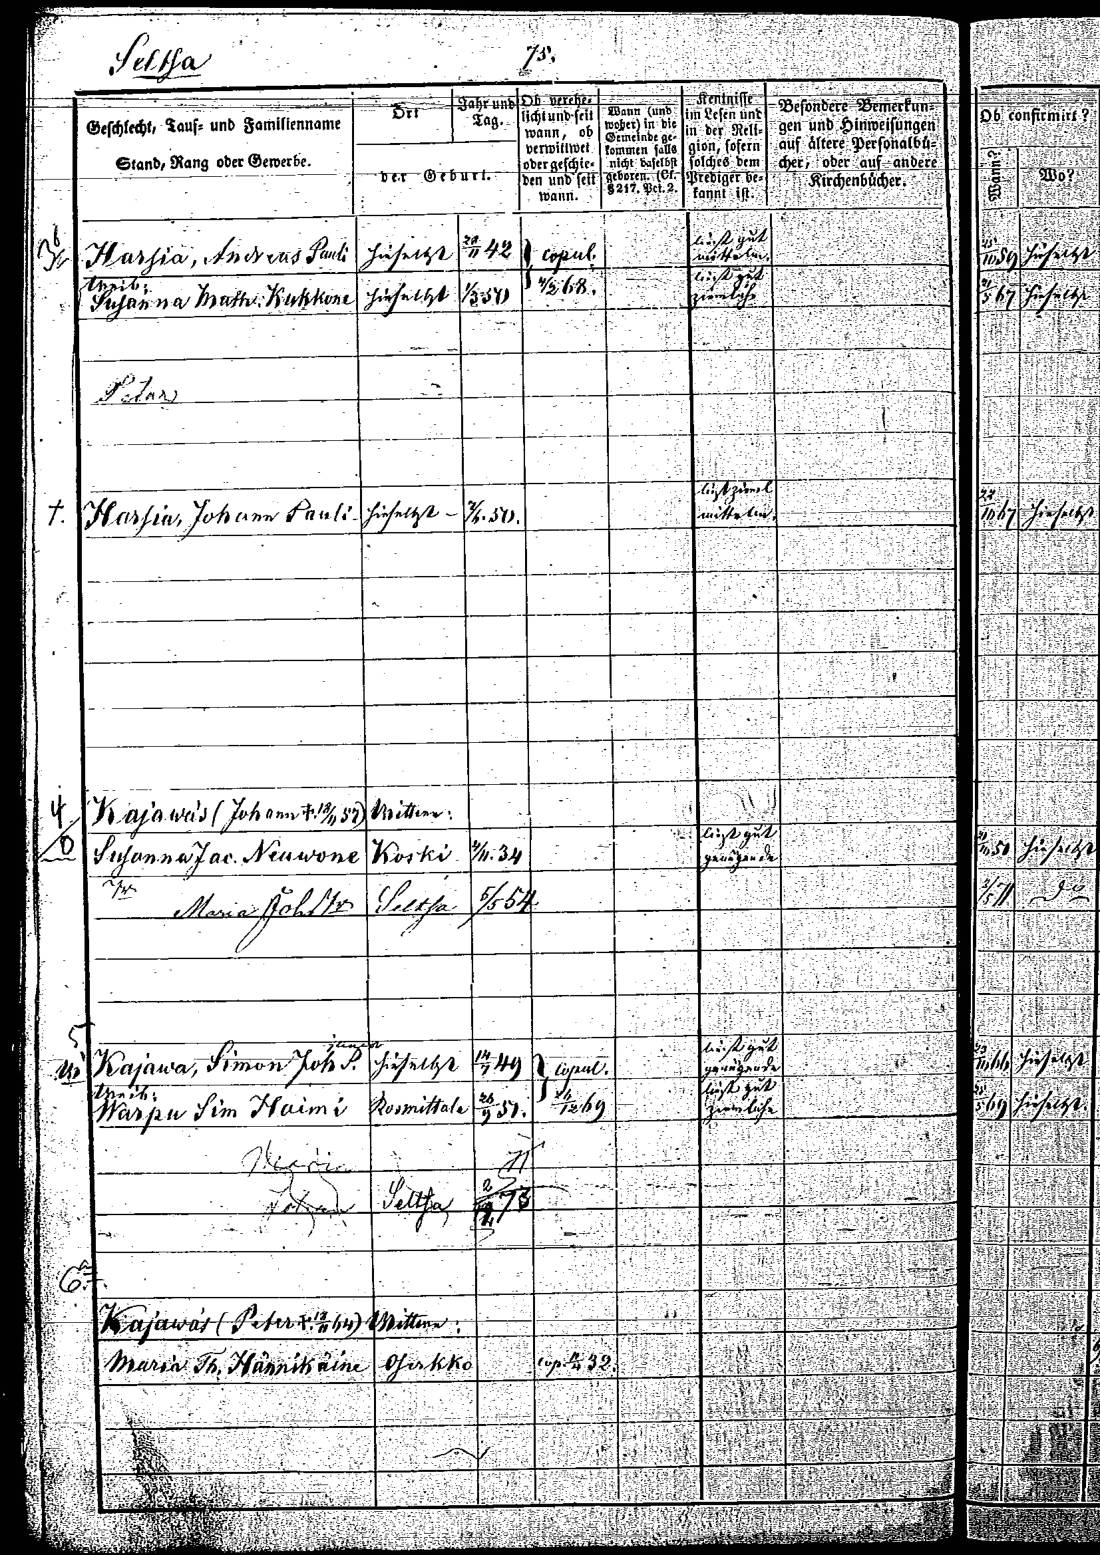 Seltsa 75.
Geschlecht, Tauf- und Familienname
Stand, Rang oder Gewerbe.
Ort
der Geburt.
Jahr und
Tag.
Ob verehe-
licht und seit
wann, ob
verwittwet
oder geschie-
den und seit
wann.
Wann (und
woher) in die
Gemeinde ge-
kommen falls
nicht daselbst
geboren. (Cf.
§ 217. Pct. 2.
Kentnisse
im Lesen und
in der Reli-
gion, sofern
solches dem
Prediger be-
kannt ist.
Besondere Bemerkun-
gen und Hinweisungen
auf ältere Personalbü-
cher, oder auf andere
Kirchenbücher.
Ob confirmirt?
Wann? Wo?
Harsia, Andreas Pauli hieselbst 42 copul. liest gut mittelm. 59 hieselbst
Weib:
Susanna Math: Kukkone hieselbst 1/3 50 68. liest gut ziemlich 67 hieselbst
Peter
†. Harsia, Johann Pauli hieselbst 50. liest zieml mittelm. 67 hieselbst
4
Kajawas (Johann †. 18/11 57) Wittwe:
6 Susanna Jac. Neuwone Koski 34 liest gut genügende 50 hieselbst
Maria Joh. Seltsa 5/5 54 71 do
5
Kajawa, Simon Joh. S. junior hieselbst 14/7 49 copul. liest gut genügende 66 hieselbst
Weib:
Warpu Sim Haimi Rosmittala 26/9 51. 26/12 69 liest gut ziemliche 69 hieselbst.
Maria 71
Johan Seltsa 73
6
Kajawas (Peter †. 12/11 64) Wittwe:
Maria Th. Hännikäine Oserkko cop. 32.